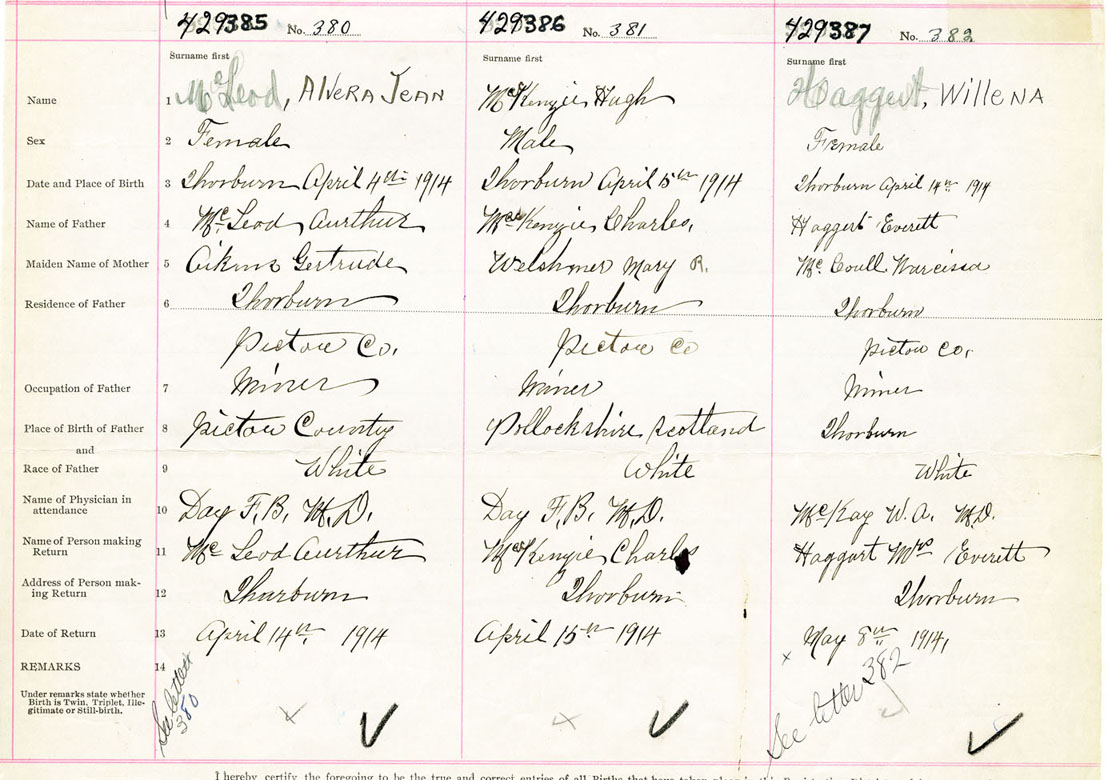 429385 No. 380 429386 No. 381 429387 No. 382
Surname first Surname first Surname first
Name 1 McLeod, Alvera Jean McKenzie Hugh Haggert, Willena
Sex 2 Female Male Female
Date and Place of Birth 3 Thorburn April 4th 1914 Thorburn April 5th 1914 Thorburn April 14th 1914
Name of Father 4 McLeod Aurthur MacKenzie Charles, Haggert Everett
Maiden Name of Mother 5 Aikins Gertrude Welshner Mary R. McCoull Narcissa
Residence of Father 6 Thorburn Thorburn Thorburn
Pictou Co. Pictou Co Pictou Co.
Occupation of Father 7 Miner Miner Miner
Place of Birth of Father 8 Pictou County Pollockshire, Scotland Thorburn
and
Race of Father 9 White White White
Name of Physician in
attendance 10 Day F.B. M.D. Day F.B. M.D. McKay W.A. M.D.
Name of Person making
Return 11 McLeod Aurthur MacKenzie Charles Haggart Mrs Everett
Address of Person mak-
ing Return 12 Tharburn Thorburn Thorburn
Date of Return 13 April 14th, 1914 April 15th 1914 May 8th 1914,
REMARKS 14
Under remarks state whether
Birth is Twin, Triplet, Ille-
gitimate or Still-birth.
See letter
380
See letter 382
I hereby certify the foregoing to be the true and correct entries of all Births that have taken place in this